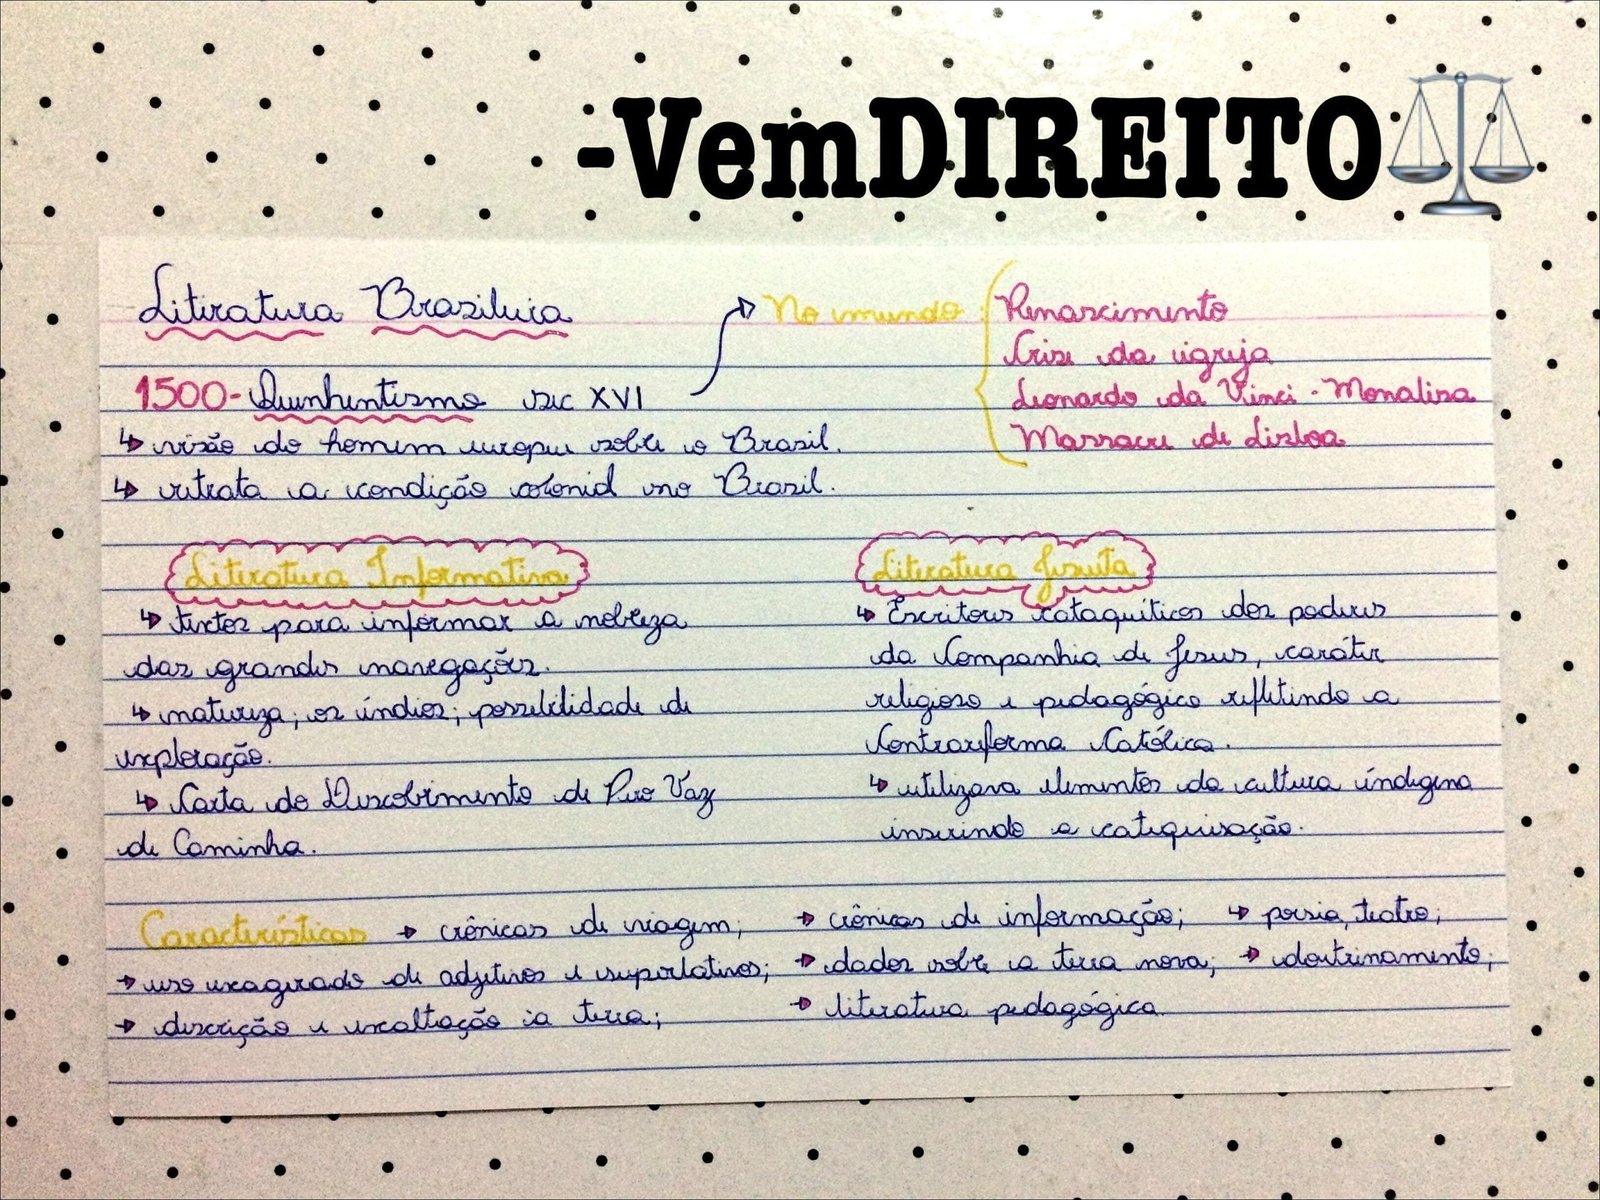 -VemDIREITO
Literatura Brasileira
1500-Quinhentismo sec XVI
↳ visão do homem europeu sobre o Brasil.
↳ retrata a condição colonial no Brasil.
No mundo:
Renascimento
Crise da igreja
Leonardo da Vinci - Monalisa
Massacre de Lisboa
Literatura Informativa
↳ textos para informar a nobreza
das grandes navegações.
↳ natureza; os índios; possibilidade de
exploração.
↳ Carta do Descobrimento de Pero Vaz
de Caminha.
Literatura Jesuíta
↳ Escritores cataquíticos dos padres
da Companhia de Jesus, caráter
religioso e pedagógico refletindo a
Contrarreforma Católica.
↳ utilizava elementos da cultura indígena
inserindo a catequisação.
Características → crônicas de viagem; → crônicas de informação; ↳ poesia, teatro;
→ uso exagerado de adjetivos e superlativos; → dados sobre a terra nova; → doutrinamento;
→ descrição e exaltação a terra; → literatura pedagógica.